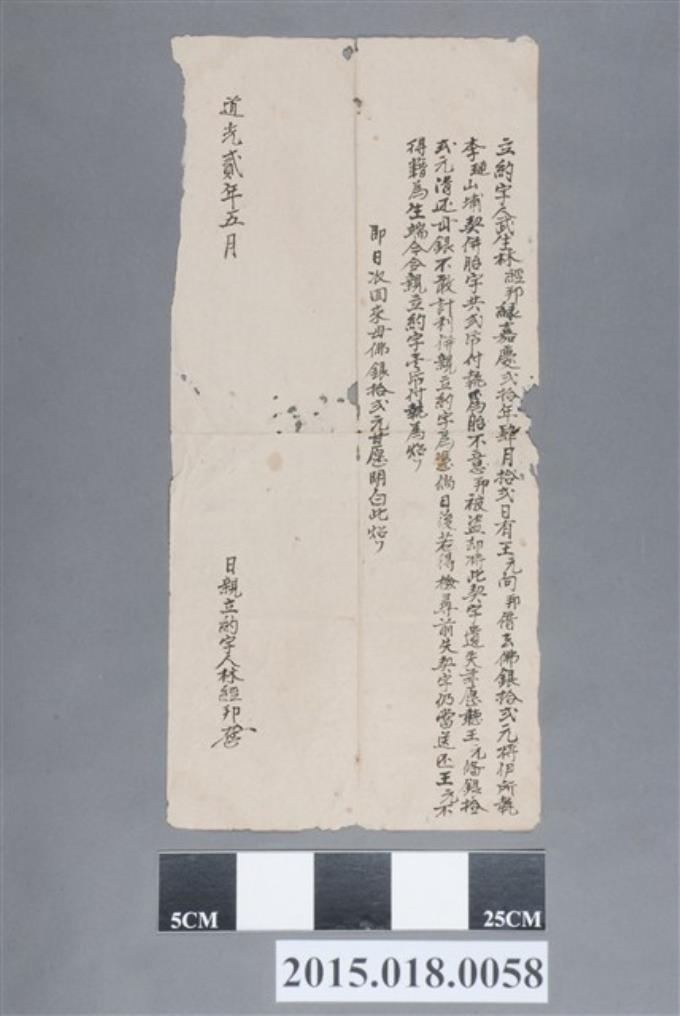 立約字人武生林經邦緣嘉慶弍拾年肆月拾弍日有王元向邦借去佛銀拾弍元將伊所執
李璉山埔契併胎字共弍帋付執為胎不意邦被盜却將此契字遺失亦愿聽王元俻銀拾
弍元清还母銀不敢計利併親立約字為憑倘日後若得檢尋前失契字仍當送还王元不
得藉為生端今合親立約字壹帋付執為炤
即日收回來母佛銀拾弍元甘愿明白此炤
道光貳年五月
日親立約字人林經邦
5CM
25CM
2015.018.0058